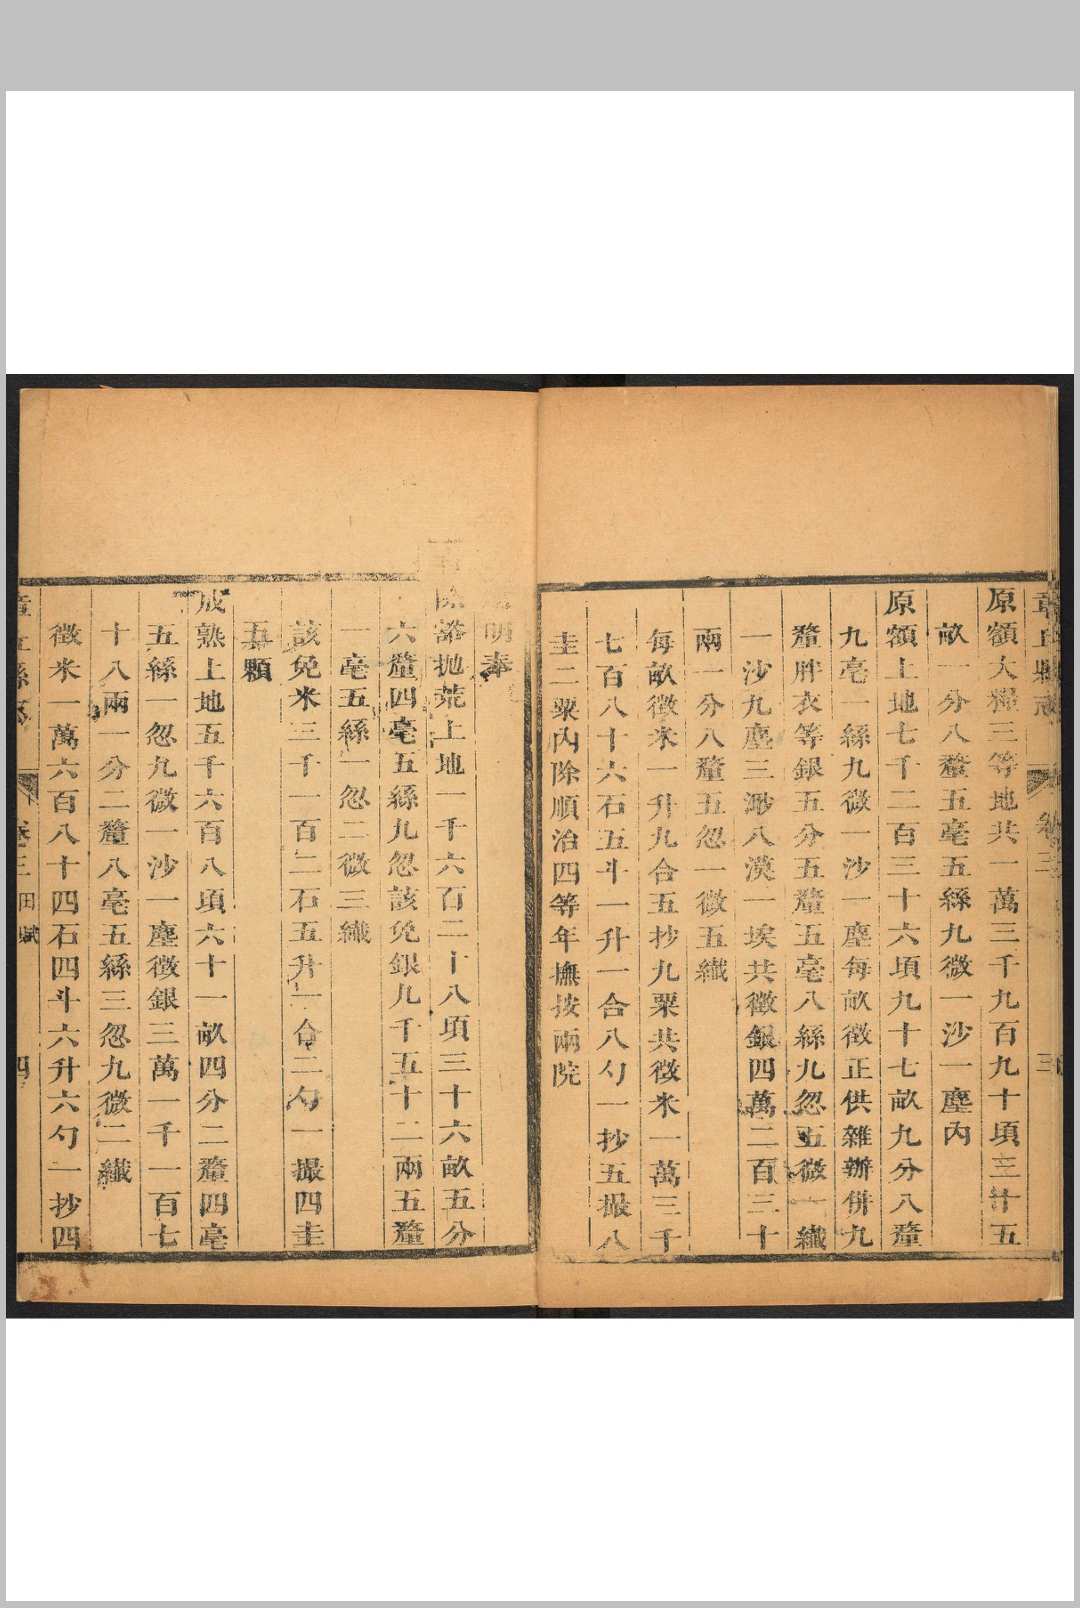 章丘縣志 卷三 三
原額大糧三等地共一萬三千九百九十頃三十五
畝一分八釐五毫五絲九微一沙一塵內
原額上地七千二百三十六頃九十七畝九分八釐
九毫一絲九微一沙一塵每畝徵正供雜辦併九
釐胖衣等銀五分五釐五毫八絲九忽五微一纖
一沙九塵三渺八漠一埃共徵銀四萬二百三十
兩一分八釐五忽一微五纖
每畝徵米一升九合五抄九粟共徵米一萬三千
七百八十六石五斗一升一合八勺一抄五撮八
圭二粟內除順治四等年撫按兩院
明奉
拋荒上地一千六百二十八頃三十六畝五分
六釐四毫五絲九忽該免銀九千五十二兩五釐
一毫五絲一忽二微三纖
該免米三千一百二石五升一合二勺一撮四圭
五顆
成熟上地五千六百八頃六十一畝四分二釐四毫
五絲一忽九微一沙一塵徵銀三萬一千一百七
十八兩一分二釐八毫五絲三忽九微二纖
徵米一萬六百八十四石四斗六升六勺一抄四
章丘縣志 卷三 田賦 四